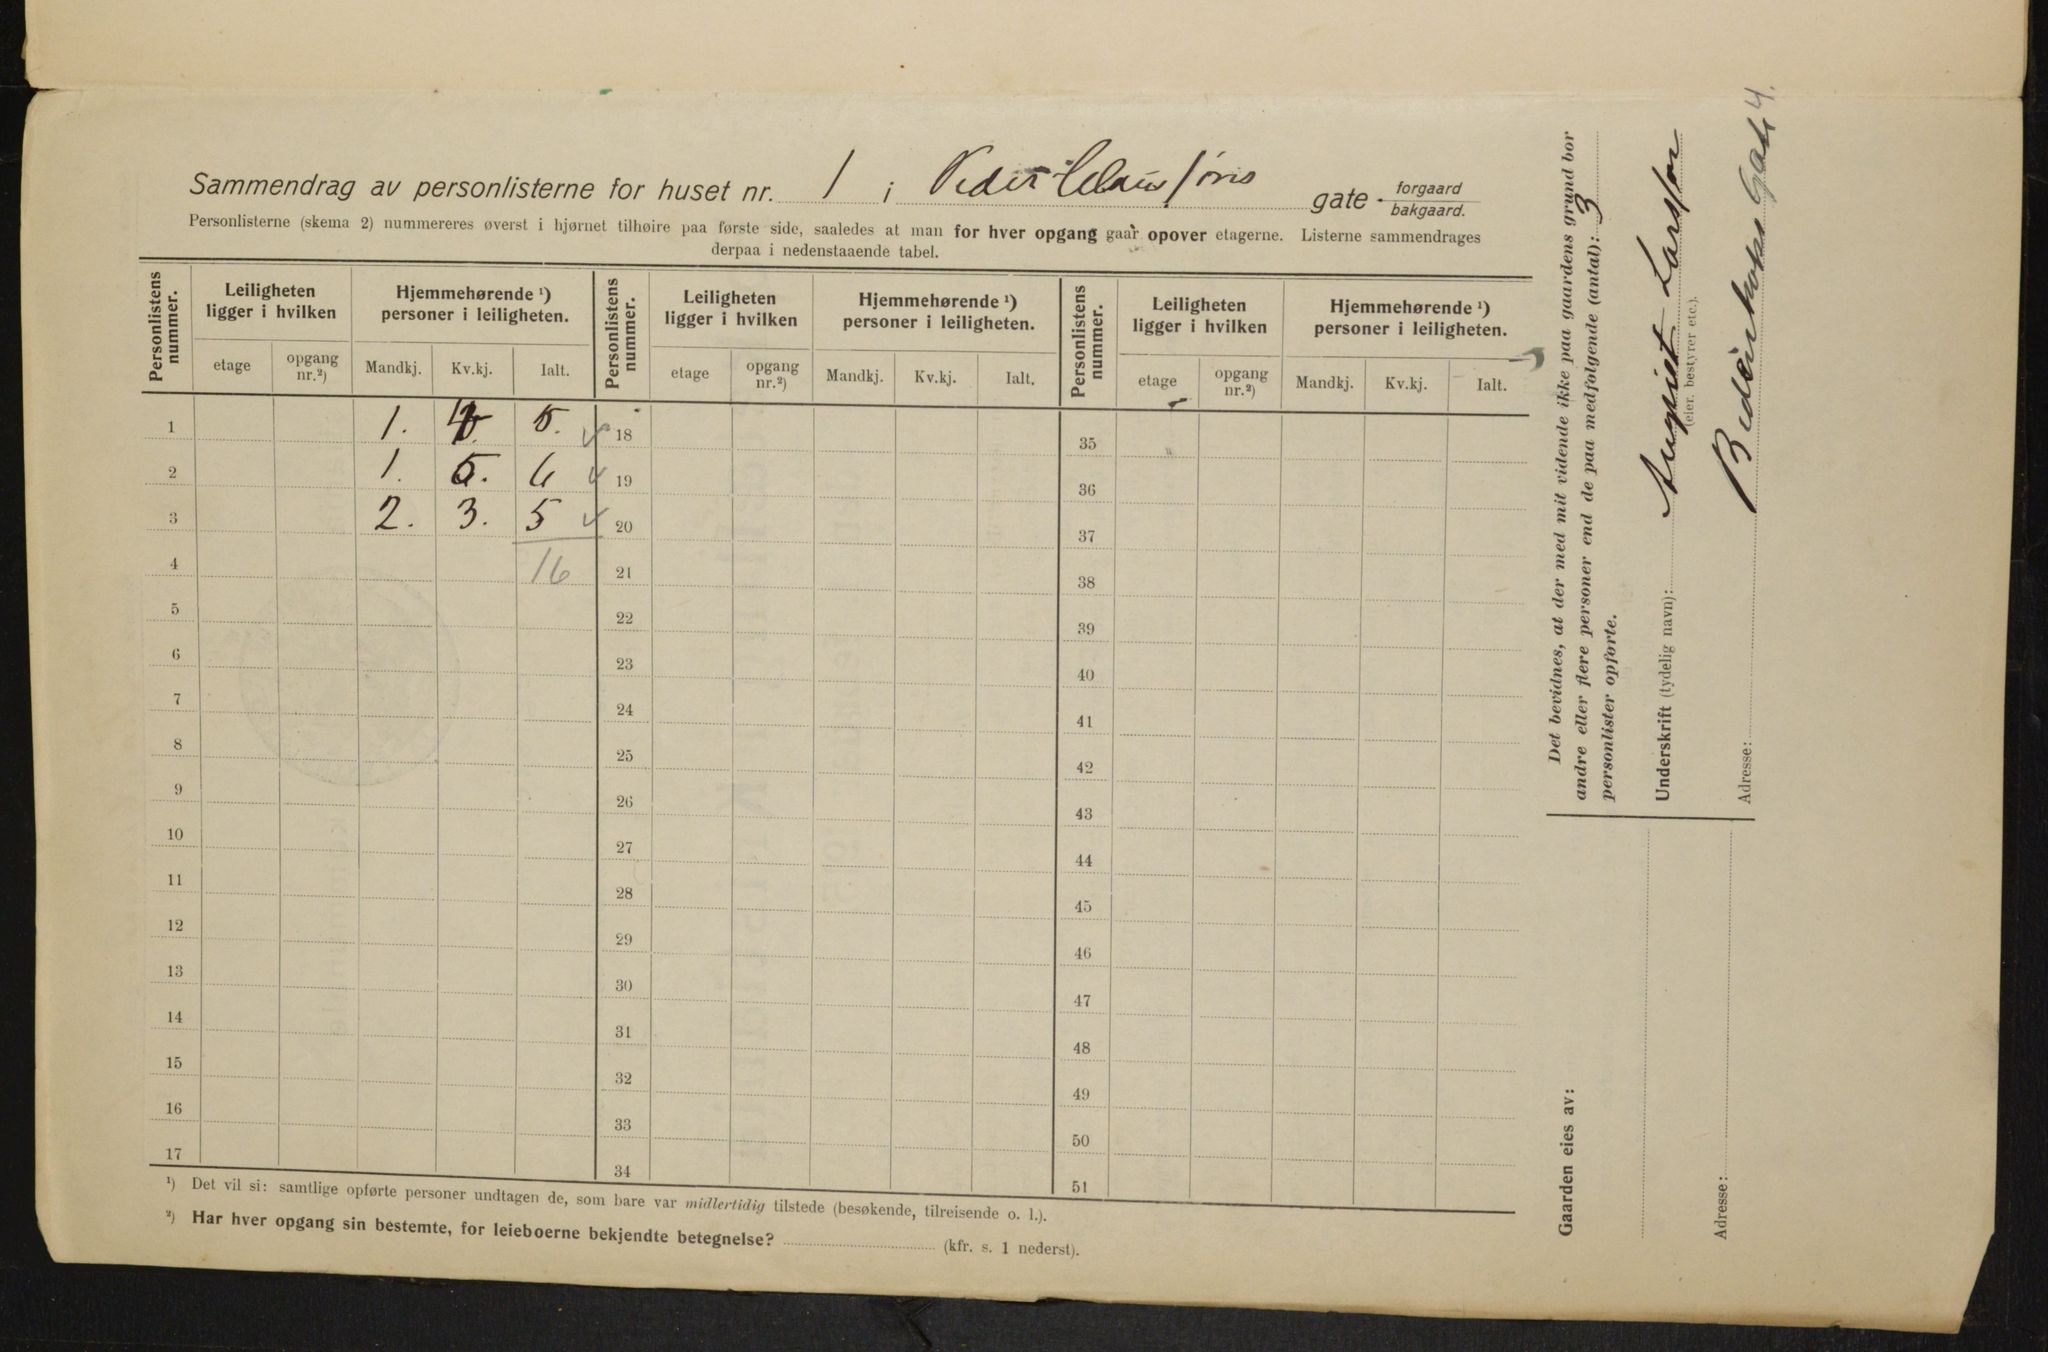 Sammendrag av personlisterne for huset nr. 1 i Peder Claussøns gate forgaard bakgaard.
Personlisterne (skema 2) nummereres øverst i hjørnet tilhøire paa første side, saaledes at man for hver opgang gaar opover etagerne. Listerne sammendrages
derpaa i nedenstaaende tabel.
Personlistens nummer. Leiligheten ligger i hvilken Hjemmehørende ¹) personer i leiligheten. Personlistens nummer. Leiligheten ligger i hvilken Hjemmehørende ¹) personer i leiligheten. Personlistens nummer. Leiligheten ligger i hvilken Hjemmehørende ¹) personer i leiligheten.
etage opgang nr.²) Mandkj. Kv.kj. Ialt. etage opgang nr.²) Mandkj. Kv.kj. Ialt. etage opgang nr.²) Mandkj. Kv.kj. Ialt.
1 1. 4. 5. 18 35
2 1. 5. 6 19 36
3 2. 3. 5 20 37
4 16 21 38
5 22 39
6 23 40
7 24 41
8 25 42
9 26 43
10 27 44
11 28 45
12 29 46
13 30 47
14 31 48
15 32 49
16 33 50
17 34 51
¹) Det vil si: samtlige opførte personer undtagen de, som bare var midlertidig tilstede (besøkende, tilreisende o. l.).
²) Har hver opgang sin bestemte, for leieboerne bekjendte betegnelse? (kfr. s. 1 nederst).
Det bevidnes, at der med mit vidende ikke paa gaardens grund bor
andre eller flere personer end de paa medfølgende (antal): 3
personlister opførte.
Underskrift (tydelig navn): August Larsson
(eier, bestyrer etc.).
Adresse: Bidenkaps Gade 4.
Gaarden eies av:
Adresse: